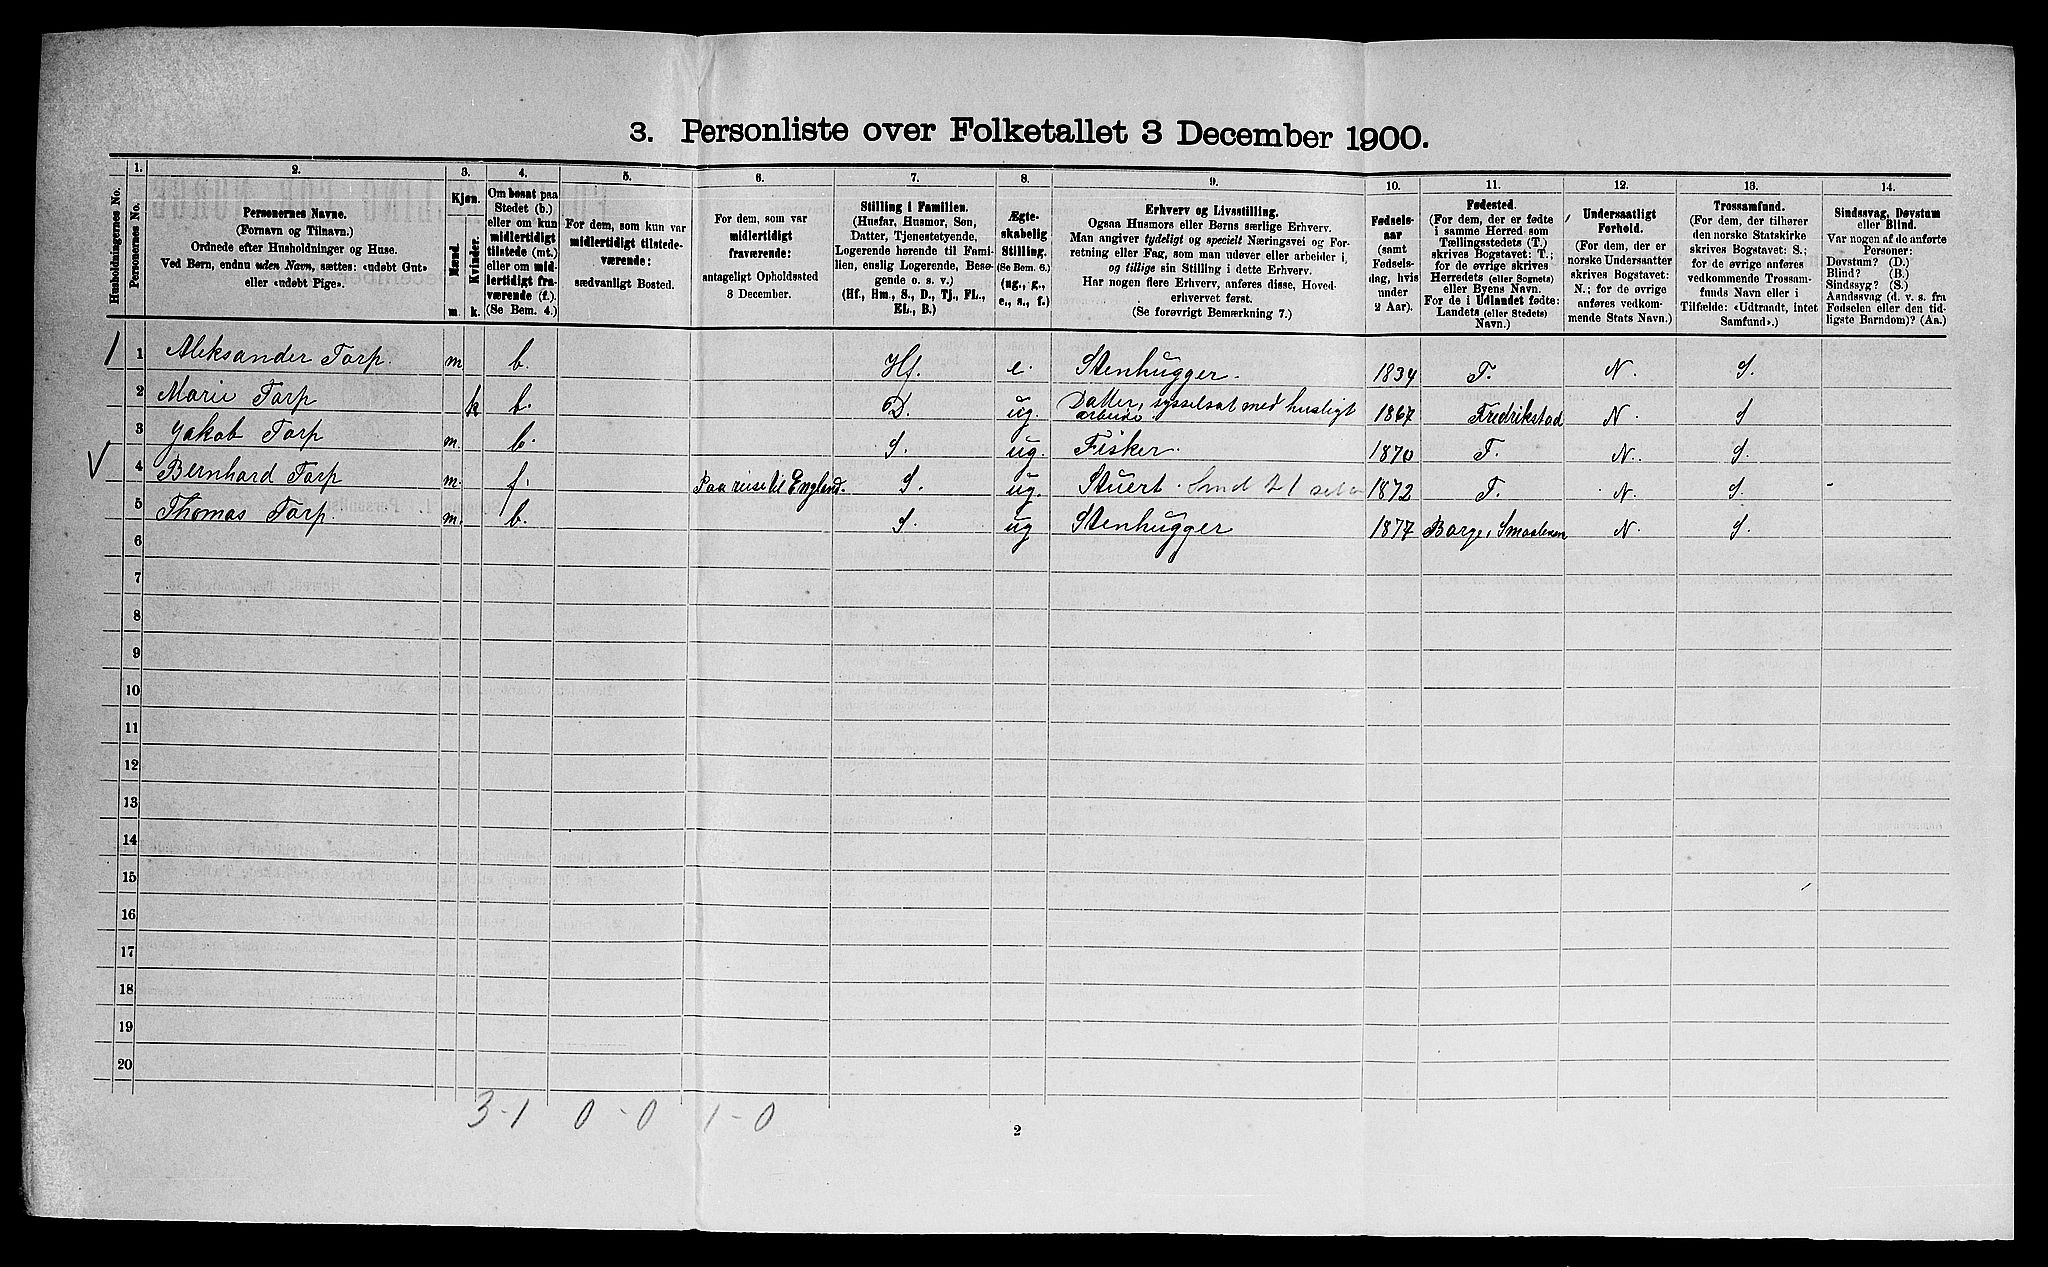 3. Personliste over Folketallet 3 December 1900.
1. 2. 3. 4. 5. 6. 7. 8. 9. 10. 11. 12. 13. 14.
Husholdningernes No.
Personernes No.
Personernes Navne.
(Fornavn og Tilnavn.)
Ordnede efter Husholdninger og Huse.
Ved Børn, endnu uden Navn, sættes: «udøbt Gut»
eller «udøbt Pige».
Kjøn.
Mænd.
Kvinder.
m. k.
Om bosat paa
Stedet (b.)
eller om kun
midlertidigt
tilstede (mt.)
eller om mid-
lertidigt fra-
værende (f.).
(Se Bem. 4.)
For dem, som kun var
midlertidigt tilstede-
værende:
sædvanligt Bosted.
For dem, som var
midlertidigt
fraværende:
antageligt Opholdssted
3 December.
Stilling i Familien.
(Husfar, Husmor, Søn,
Datter, Tjenestetyende,
Logerende hørende til Fami-
lien, enslig Logerende, Besø-
gende o. s. v.)
(Hf., Hm., S., D., Tj., FL.,
EL., B.)
Ægte-
skabelig
Stilling.
(Se Bem. 6.)
(ug., g.,
e., s., f.)
Erhverv og Livsstilling.
Ogsaa Husmors eller Børns særlige Erhverv.
Man angiver tydeligt og specielt Næringsvei og For-
retning eller Fag, som man udøver eller arbeider i,
og tillige sin Stilling i dette Erhverv.
Har nogen flere Erhverv, anføres disse, Hoved-
erhvervet først.
(Se forøvrigt Bemærkning 7.)
Fødsels-
aar
(samt
Fødsels-
dag, hvis
under
2 Aar).
Fødested.
(For dem, der er fødte
i samme Herred som
Tællingsstedets (T.)
skrives Bogstavet: T.;
for de øvrige skrives
Herredets (eller Sognets)
eller Byens Navn.
For de i Udlandet fødte:
Landets (eller Stedets)
Navn.)
Undersaatligt
Forhold.
(For dem, der er
norske Undersaatter
skrives Bogstavet:
N.; for de øvrige
anføres vedkom-
mende Stats Navn.)
Trossamfund.
(For dem, der tilhører
den norske Statskirke
skrives Bogstavet: S.;
for de øvrige anføres
vedkommende Trossam-
funds Navn eller i
Tilfælde: «Udtraadt, intet
Samfund».)
Sindssvag, Døvstum
eller Blind.
Var nogen af de anførte
Personer:
Døvstum? (D.)
Blind? (B.)
Sindssyg? (S.)
Aandssvag (d. v. s. fra
Fødselen eller den tid-
ligste Barndom)? (Aa.)
1 1 Aleksander Torp. m b. Hf. e. Stenhugger. 1834 T. N. S.
2 Marie Torp k b. D. ug. Datter, sysselsat med husligt
arbeide 1867 Fredrikstad N. S
3 Jakob Torp m. b. S. ug. Fisker. 1870 T. N. S.
V 4 Bernhard Torp m. f. Paa reise til England. S. ug. Stuert. 1872 T. N. S.
5 Thomas Torp. m. b. S. ug Stenhugger 1877 Borge, Smaalenen N. S.
6
7
8
9
10
11
12
13
14
15
16
17
18
19
20
3-1 0-0 1-0
2